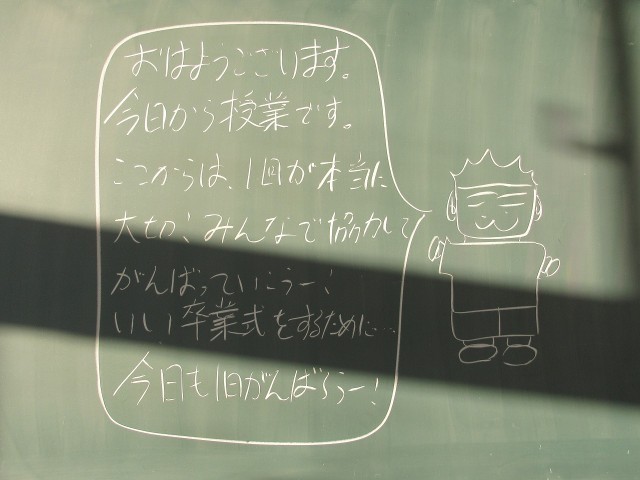 おはようございます。
今日から授業です。
ここからは、1回が本当に
大切！みんなで協力して
がんばっていこうー！
いい卒業式をするために…
今日も1日がんばろうー！